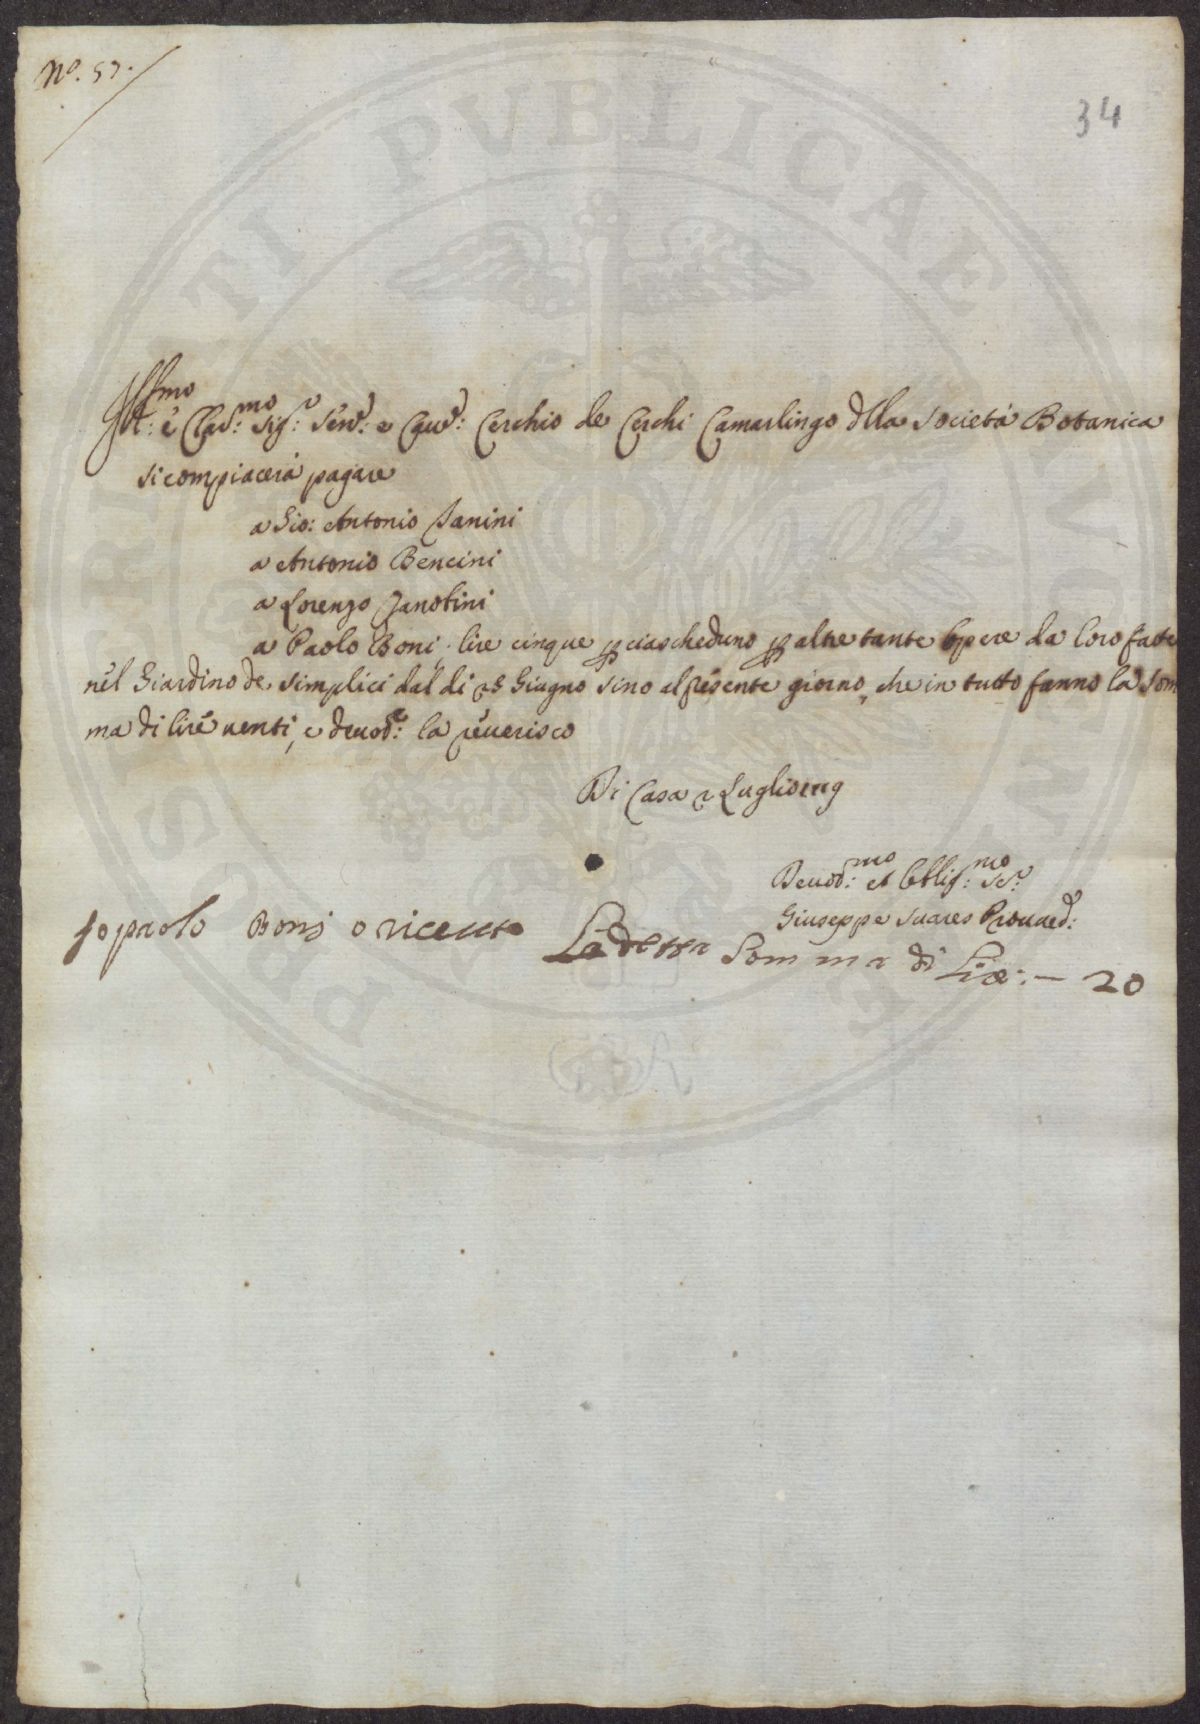 No. 57.
34
Ill:mo e Clar:mo Sig:r Sen:r e Cau:r Cerchio de Cerchi Camarlingo della Società Botanica
si compiacerà pagare
a Gio: Antonio Janini
a Antonio Bencini
a Lorenzo Zanobini
a Paolo Boni, lire cinque p ciascheduno p altre tante Opere da loro fatte
nel Giardino de Simplici dal di 28 Giugno sino al presente giorno, che in tutto fanno la som
ma di lire uenti, e deuod:e la reuerisco
Di Casa 2 Luglio
Deuod:mo et Oblig:mo Se:r
Giuseppe Suares Prouued:
Io paolo Boni o riceuto
La detta Somma di Lire:— 20